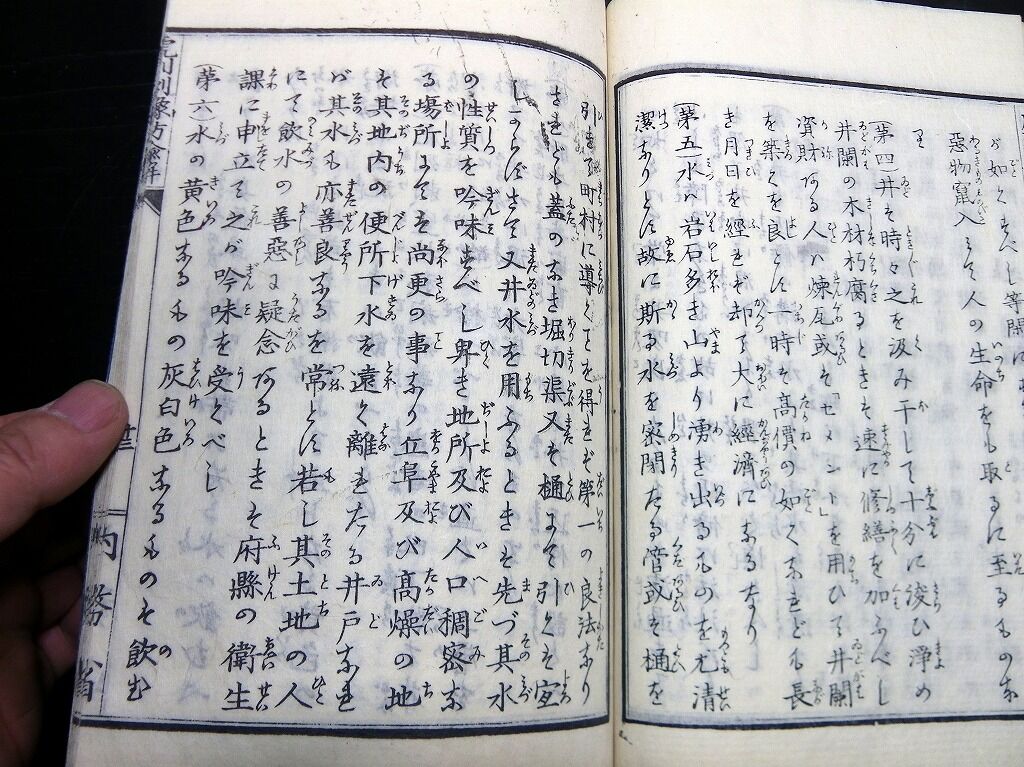 が如くすべし等閑にす
惡物竄入して人の生命をも取るに至るものな
り
(第四)井は時々之を汲み干して十分に浚ひ淨め
井闌の木材朽腐るときは速に修繕を加ふべし
資財ある人ハ煉瓦或は「セメント」を用ひて井闌
を築くを良とす一時は高價の如くなれども長
き月日を經れば却て大に經濟になるなり
(第五)水ハ岩石多き山より湧き出るものを尤清
潔なりとす故に斯る水を密閉たる管或は樋を
引き町村に導くことを得れば第一の良法なり
されども蓋のなき堀切渠又は樋にて引くは宜
しからずさて又井水を用ふるときは先づ其水
の性質を吟味すべし卑き地所及び人口稠密な
る場所にては尚更の事なり丘阜及び高燥の地
は其地内の便所下水を遠く離れたる井戸なれ
ば其水も亦善良なるを常とす若し其土地の人
にて飲水の善惡に疑念あるときは府縣の衛生
課に申立て之が吟味を受くべし
(第六)水の黄色なるもの灰白色なるものは飲む
虎列剌豫防諭解
十二
内務省